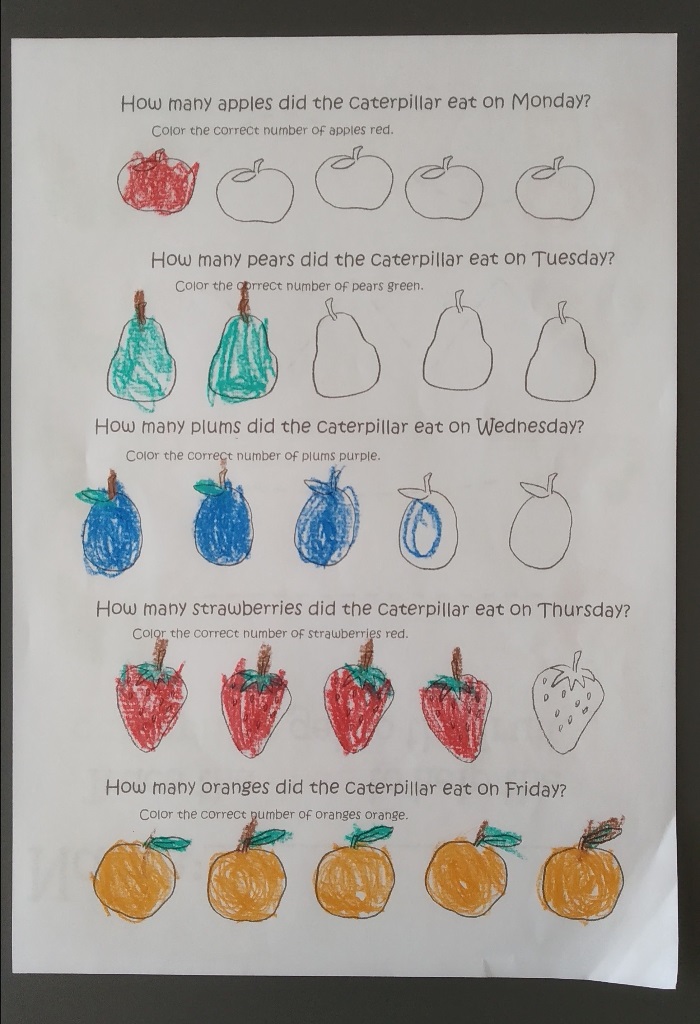 How many apples did the caterpillar eat on Monday?
Color the correct number of apples red.
How many pears did the caterpillar eat on Tuesday?
Color the correct number of pears green.
How many plums did the caterpillar eat on Wednesday?
Color the correct number of plums purple.
How many strawberries did the caterpillar eat on Thursday?
Color the correct number of strawberries red.
How many oranges did the caterpillar eat on Friday?
Color the correct number of oranges orange.